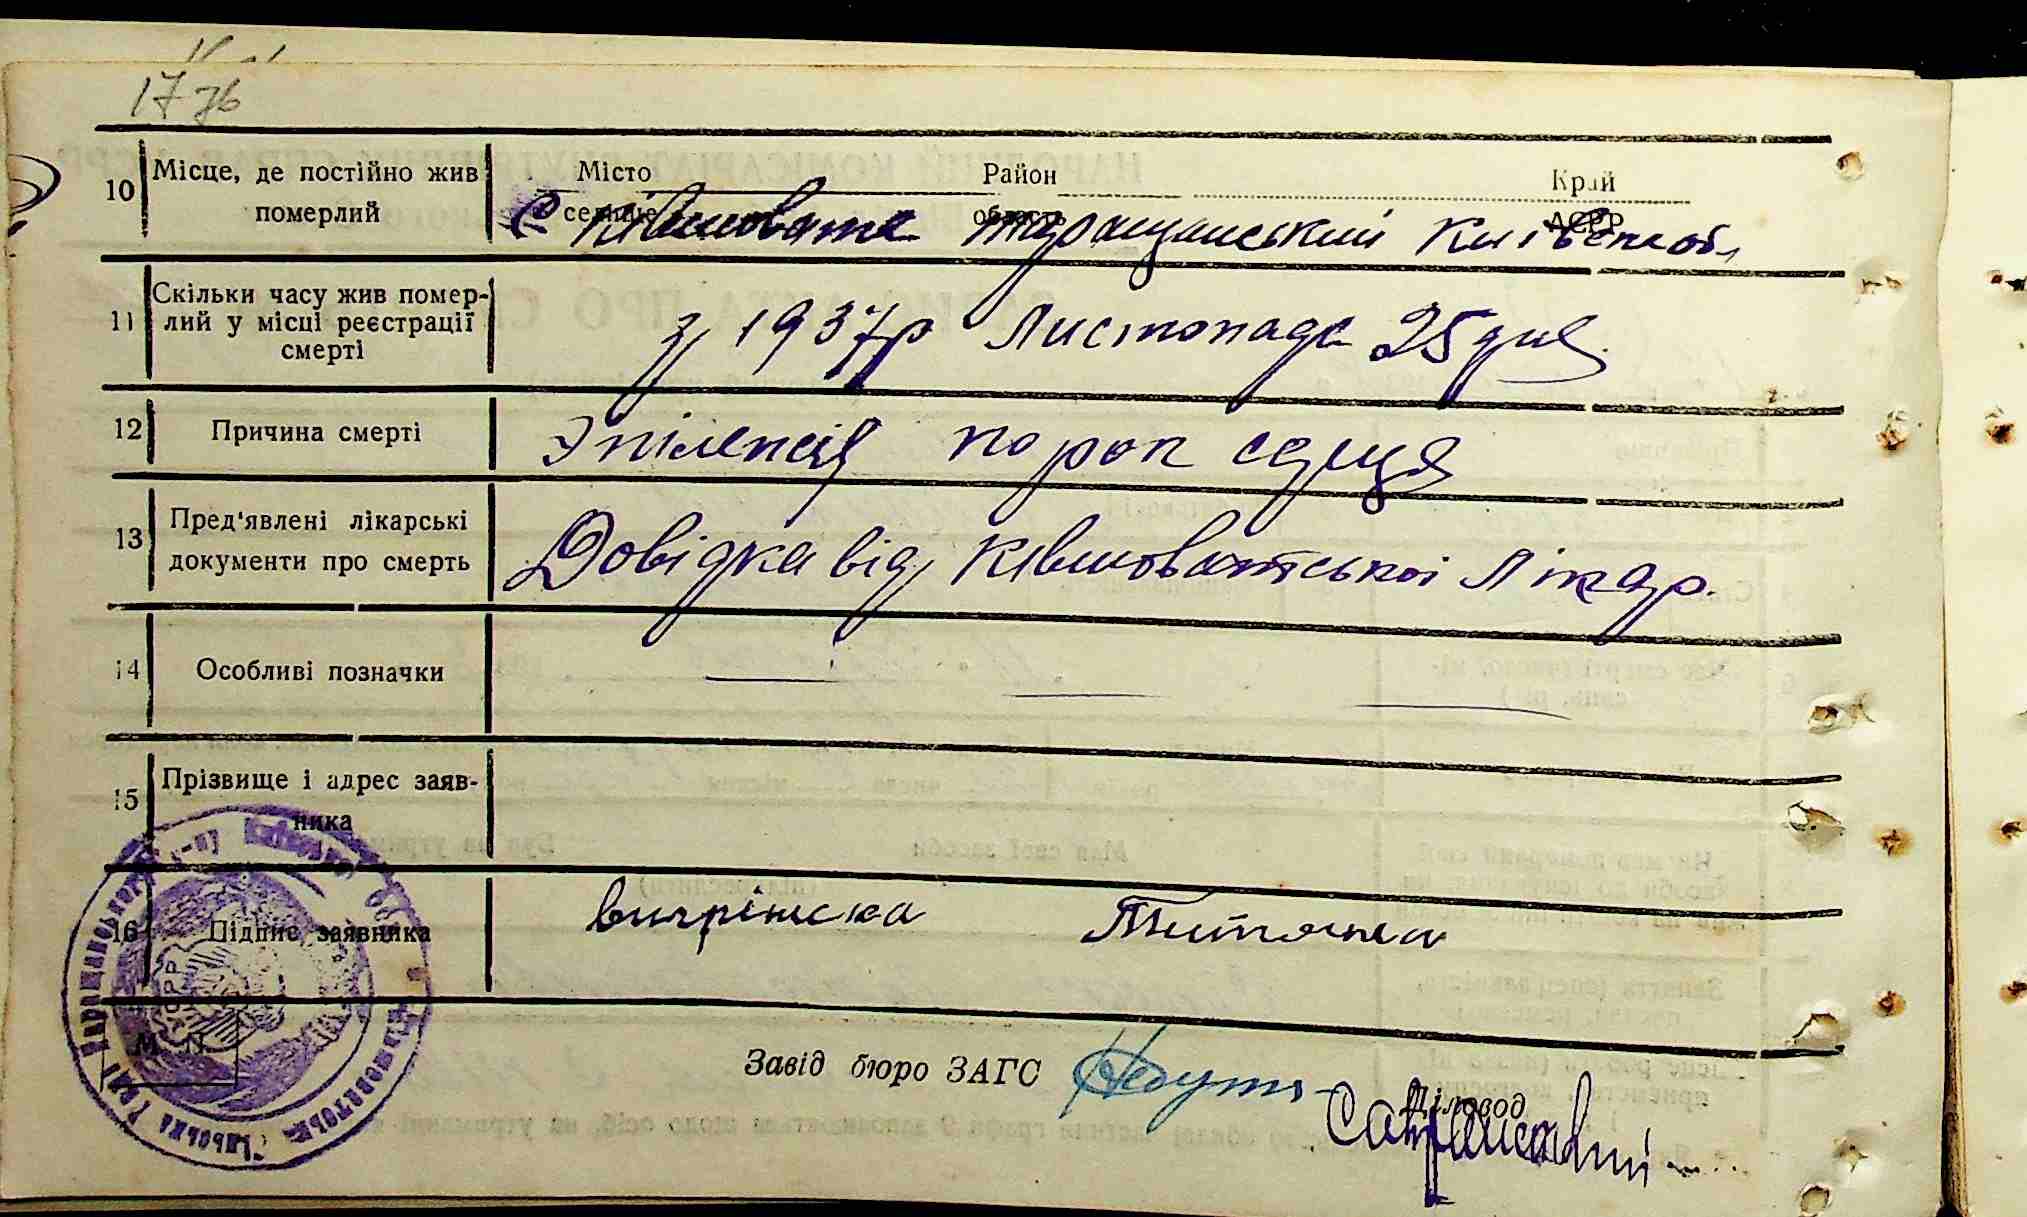 17 зв
10 Місце, де постійно жив померлий
Місто Район Край
селище область АСРР
с Ківшовата Таращанський Київськ обл
11 Скільки часу жив помер-
лий у місці реєстрації
смерті
з 1937р Листопада 25 дня.
12 Причина смерті
Эпілепсія порок серця
13 Пред'явлені лікарські
документи про смерть
Довідка від Ківшоватської Лікар.
14 Особливі позначки
— — —
15 Прізвище і адрес заяв-
ника
16 Підпис заявника
М П
Завід бюро ЗАГС
Діловод